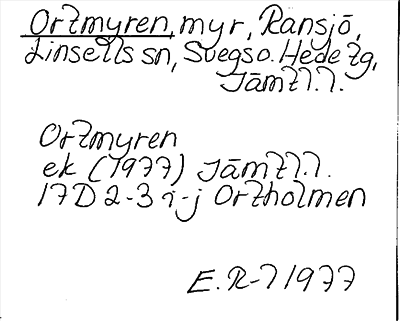 Ortmyren, myr, Ransjö,
Linsells sn, Svegs o. Hede tg,
Jämtl. l.
Ortmyren
ek (1977) Jämtl. l.
17D 2-3 i-j Ortholmen
E. R-l 1977